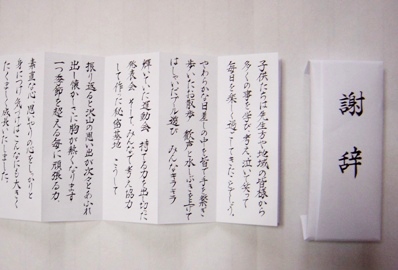 謝辞
子供たちは先生方や地域の皆様から
多くの事を学び、考え、泣いて笑って
毎日を楽しく過ごしてきたことでしょう。
やわらかな日差しの中を皆で手を繋ぎ
歩いたお散歩 歓声と水しぶきを上げて
はしゃいだプール遊び みんなキラキラ
輝いていた運動会 持てる力を出し切った
発表会 そして、みんなで考え協力
して作った秘密基地 こうして
振り返ると沢山の思い出が次々とあふれ
出し懐かしさに胸が熱くなります
一つ季節を越える毎に頑張る力、
素直な心、思いやりの心をしっかりと
身につけ気づけばこんなにも大きく
たくましく成長いたしました。